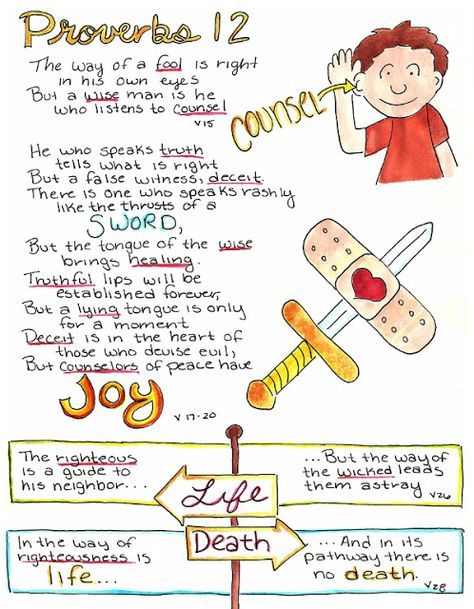 Proverbs 12
The way of a fool is right
in his own eyes
But a wise man is he
who listens to counsel
v15
COUNSEL
He who speaks truth
tells what is right
But a false witness, deceit.
There is one who speaks rashly
like the thrusts of a
SWORD,
But the tongue of the wise
brings healing.
Truthful lips will be
established forever,
But a lying tongue is only
for a moment
Deceit is in the heart of
those who devise evil,
But counselors of peace have
Joy
v 17-20
The righteous
is a guide to
his neighbor...
...But the way of
the wicked leads
them astray
v26
Life
Death
In the way of
righteousness is
life...
...And in its
pathway there is
no death.
v28